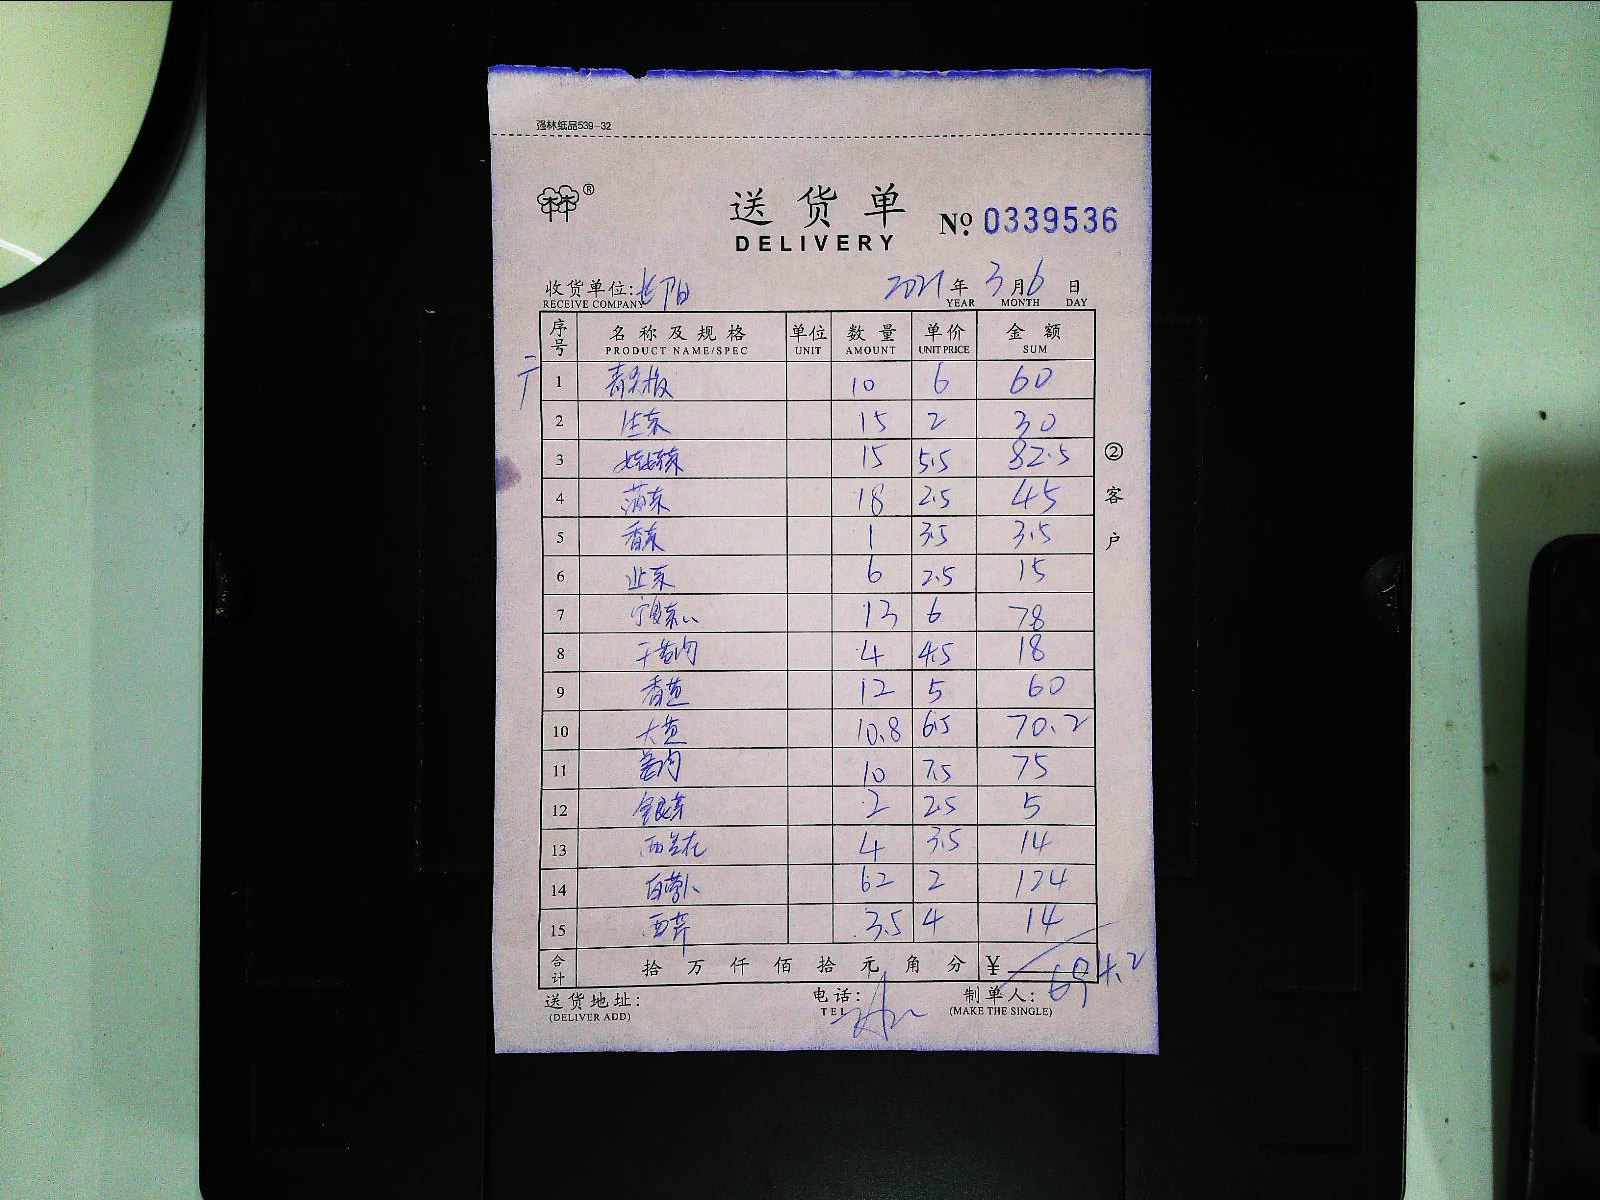 强林纸品539-32
林®
送货单
DELIVERY
Nº. 0339536
收货单位: 长阳 2021年3月6日
RECEIVE COMPANY YEAR MONTH DAY
序号 名称及规格 单位 数量 单价 金额
PRODUCT NAME/SPEC UNIT AMOUNT UNIT PRICE SUM
1 10 6 60
2 生菜 15 2 30
3 娃娃菜 15 5.5 82.5
4 蒲菜 18 2.5 45
5 香菜 1 3.5 3.5
6 2.5 15
7 13 6 78
8 4 4.5 18
9 香葱 12 5 60
10 大葱 10.8 6.5 70.2
11 姜肉 10 7.5 75
12 银芽 2 2.5 5
13 西兰花 4 3.5 14
14 白萝卜 62 2 124
15 西芹 3.5 4 14
合计 拾万仟佰拾元角分 ¥ 694.2
②客户
送货地址: 电话: 制单人:
(DELIVER ADD) TEL (MAKE THE SINGLE)